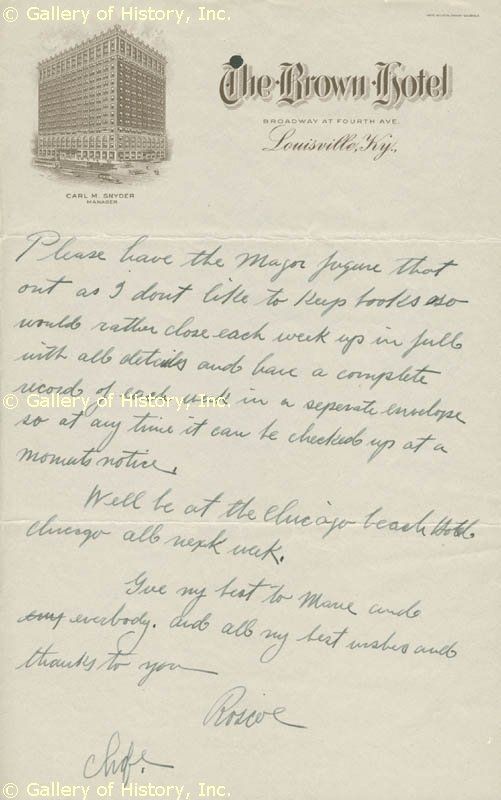 © Gallery of History, Inc.
The Brown Hotel
BROADWAY AT FOURTH AVE.
Louisville, Ky.,
© Gallery of History, Inc.
CARL M. SNYDER
MANAGER
Please have the Major fugure that
out as I dont like to keep books so
would rather close each week up in full
with all details and have a complete
record of each week in a seperate envelope
© Gallery of History, Inc.
so at any time it can be checked up at a
moments notice.
Well be at the Chicago beach Hotel
Chicago all next week.
Give my best to Marie and
everbody. and all my best wishes and
thanks to you
Roscoe
© Gallery of History, Inc.